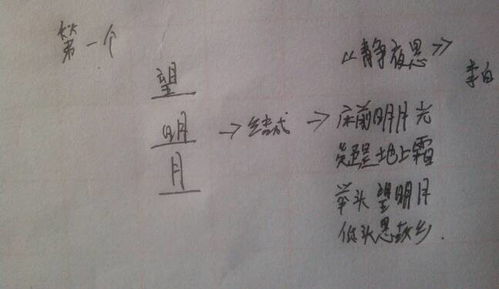 第一个
望
明
月
《静夜思》
李白
床前明月光
疑是地上霜
举头望明月
低头思故乡.